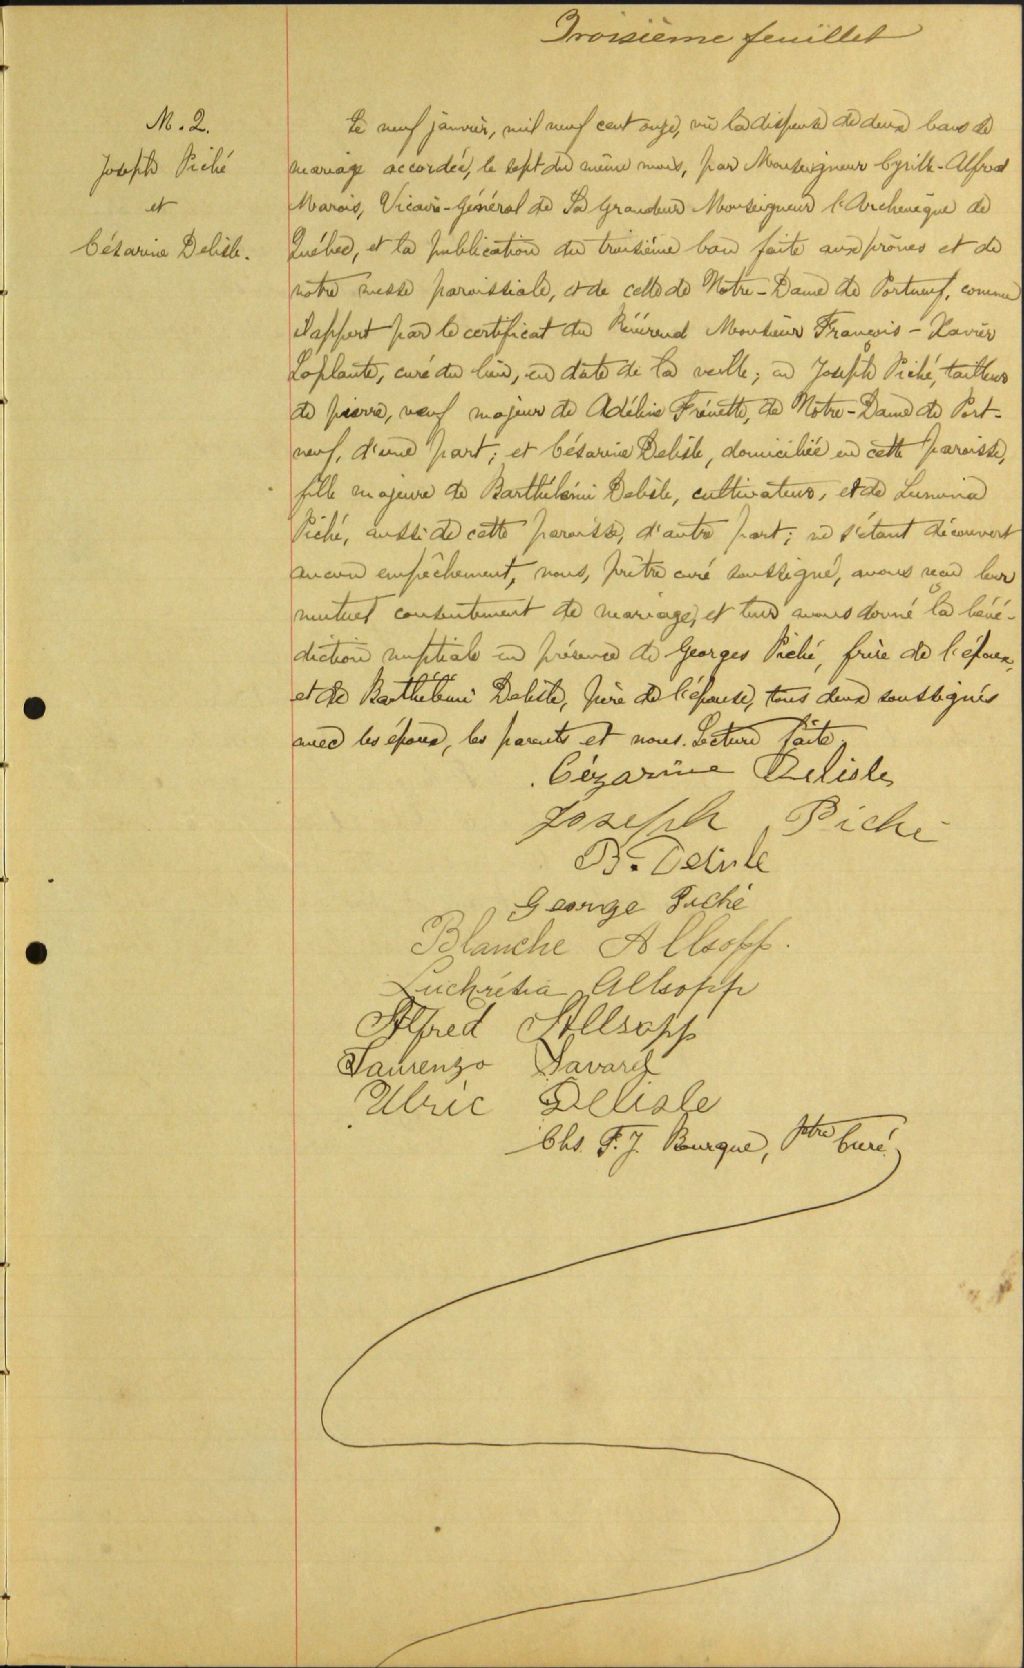 Troisième feuillet
M. 2.
Joseph Piché
et
Césarine Delisle.
Le neuf janvier, mil neuf cent onze, vu la dispense de deux bans de
mariage accordée, le sept du même mois, par Monseigneur Cyrille-Alfred
Marois, Vicaire-Général de Sa Grandeur Monseigneur l'Archevêque de
Québec, et la publication du troisième ban faite aux prônes et de
notre messe paroissiale, et de celle de Notre-Dame de Portneuf, comme
il appert par le certificat du Révérend Monsieur François-Xavier
Laplante, curé du lieu, en date de la veille; en Joseph Piché, tailleur
de pierre, veuf majeur de Adéline Frénette, de Notre-Dame de Port-
neuf, d'une part; et Césarine Delisle, domiciliée en cette paroisse,
fille majeure de Barthélémi Delisle, cultivateur, et de Lumina
Piché, aussi de cette paroisse, d'autre part; ne s'étant découvert
aucun empêchement, nous, prêtre curé soussigné, avons reçu leur
mutuel consentement de mariage, et leur avons donné la béné-
diction nuptiale en présence de Georges Piché, frère de l'époux,
et de Barthélémi Delisle, père de l'épouse, tous deux soussignés
avec les époux, les parents et nous. Lecture faite.
Cézarine Delisle
Joseph Piché
B. Delisle
George Piché
Blanche Allsopp.
Luckrésia Allsopp
Alfred Allsopp
Laurenzo Savard
Ulric Delisle
Chs. F. J. Bourque, Ptre Curé